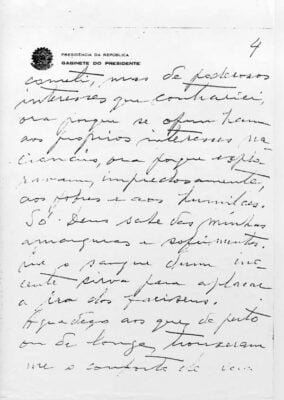 4
PRESIDÊNCIA DA REPÚBLICA
GABINETE DO PRESIDENTE
cometi, mas de poderosos
interesses que contrariei,
ora porque se opunham
aos próprios interesses na
cionais, ora porque explo
ravam, impiedosamente,
aos pobres e aos humildes.
Só Deus sabe das minhas
amarguras e sofrimentos.
que o sangue dum ino
cente sirva para aplacar
a ira dos fariseus.
Agradeço aos que de perto
ou de longe trouxeram
me o conforto de sua